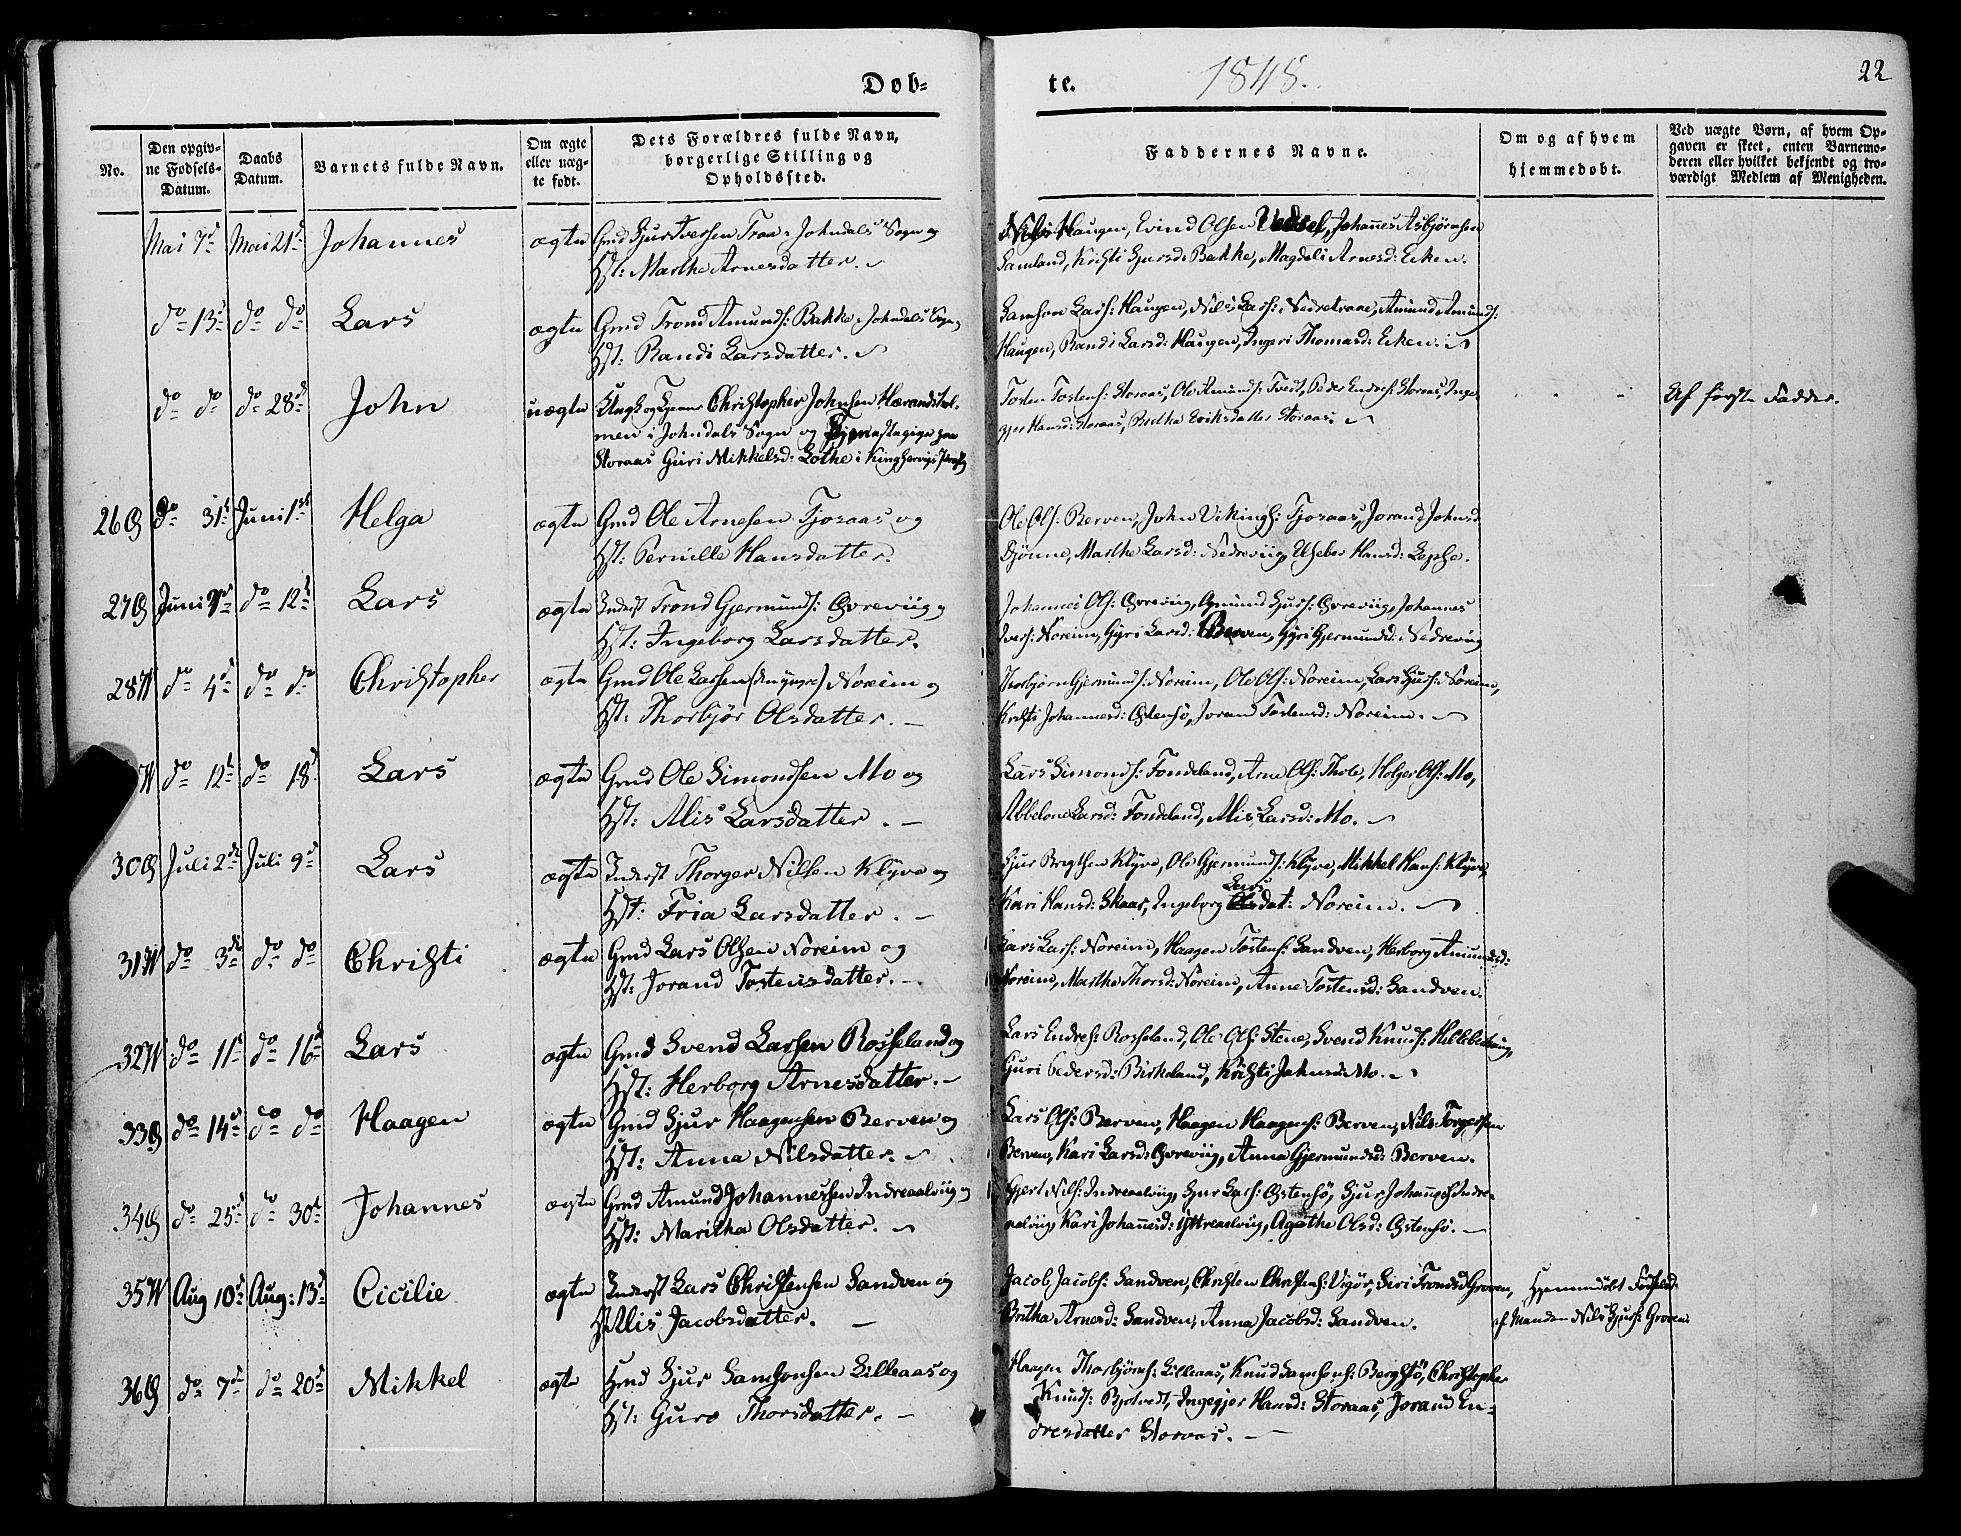 Døb-
te. 1848. 22
No.
Den opgiv-
ne Fødsels-
Datum.
Daabs
Datum.
Barnets fulde Navn.
Om ægte
eller uæg-
te født.
Dets Forældres fulde Navn,
borgerlige Stilling og
Opholdssted.
Faddernes Navne.
Om og af hvem
hjemmedøbt.
Ved uægte Børn, af hvem Op-
gaven er skeet, enten Barnemo-
deren eller hvilket bekjendt og tro-
værdigt Medlem af Menigheden.
Mai 7d Mai 21d Johannes ægte Gmd Sjur Iversen Traa i Johndals Sogn og
Hst: Marthe Arnesdatter.
Haugen, Eivind Olsen Johannes Asbjørnsen
Samland, Kristi Sjursd: Bakke, Magdeli Arnesd: Eiken.
do 13d do do Lars ægte Gmd Trond Amunds: Bakke Johndals Sogn
Hst: Randi Larsdatter.
Samson Lars: Haugen, Nils Lars: Nedretraae, Amund Amunds:
Haugen, Randi Larsd: Haugen, Ingeri Thomasd: Eiken.
do do do 28d John uægte Ungk og Christopher Johnsen Hærandshol-
men i Johndals Sogn og Tjenestepige paa
Storaas Guri Mikkelsd: Lothe i Kinghervigs
Tosten Tostens: Storaas, Ole Amunds: Tvedt, Peder Endres: Storaas, Inge-
gjer Hansd: Storaas, Britha Eriksdatter Storaas.
Af første Fadder.
26Q do 31t Juni 1st Helga ægte Gmd Ole Arnesen Tjoraas og
Hst: Pernille Hansdatter.
Ole Ols: Berven, John Vikings: Tjoraas, Jorand Johnsd
Djønne, Marthe Larsd: Nedreviig, Elsebet Hansd: Lepsøe.
27Q Juni do 12t Lars ægte Inderst Trond Gjermunds: Øvreviig og
Hst: Ingeborg Larsdatter.
Johannes Ols: Øvreviig, Amund Sjurs: Øvreviig, Johannes
Ivers: Noreim, Gyri Larsd: Berven, Gyri Gjermundsd: Nedreviig
28W do 4d do do Christopher ægte Gmd Ole Larsen (den yngre) Noreim og
Hst: Thorbjør Olsdatter.
Thorbjørn Gjermunds: Noreim, Ole Ols: Noreim, Lars Sjurs: Noreim,
Kristi Johannesd: Østensø, Jorand Tostensd: Noreim.
W do 12t do 18d Lars ægte Gmd Ole Simondsen Mo og
Hst: Alis Larsdatter.
Lars Simonds: Fondeland, Arne Ols: Thole, Holger Ols: Mo,
Abbelone Larsd: Fondeland, Alis Larsd: Mo.
30Q Juli 2de Juli 9d Lars ægte Inderst Thorger Nilsen Klyve og
Hst: Fria Larsdatter.
Sjur Brigtsen Klyve, Ole Gjermunds: Klyve, Mikkel Hans: Klyve,
Kari Hansd: Skaar, Ingeborg Lars
dat: Noreim.
31W do 3de do do Christi ægte Gmd Lars Olsen Noreim og
Hst: Jorand Tostensdatter.
Lars Lars: Noreim, Haagen Tostens: Sandven, Herborg Amundsd:
Noreim, Marthe Thorsd: Noreim, Anne Tostensd: Sandven.
32W do 11t do 16d Lars ægte Gmd Svend Larsen Rosseland og
Hst: Herborg Arnesdatter.
Lars Endres: Rosseland, Ole Ols: Stene, Svend Knuds:
Guri Pedersd: Birkeland, Kristi Johnsd: Mo.
33Q do 14d do do Haagen ægte Gmd Sjur Haagensen Berven og
Hst: Anna Nilsdatter.
Lars Ols: Berven, Haagen Haagens: Berven, Nils Torgersen
Berven, Kari Larsd: Øvreviig, Anna Gjermundsd: Berven.
34Q do 25d do 30d Johannes ægte Gmd Amund Johannessen Indreaalviig og
Hst: Maritha Olsdatter.
Gjert Nils: Indreaalviig, Sjur Lars: Østensø, Sjur Johannes: Indre-
aalviig, Kari Johannesd: Yttreaalviig, Agathe Olsd: Østensø.
35W Aug 10d Aug: 13d Cicilie ægte Inderst Lars Christensen Sandven og
Hst Alis Jacobsdatter.
Jacob Jacobs: Sandven, Christen Christens: Vigør, Siri Trondsd Groven,
Britha Arnesd: Sandven, Anna Jacobsd: Sandven.
Hjemmedøbt
af Manden Nils Sjurs: Groven.
36Q do 7d do 20d Mikkel ægte Gmd Sjur Samsonsen Lilleaas og
Hst: Guro Thorsdatter.
Haagen Thorbjørns: Lilleaas, Knud Samsons: Berghstø, Christopher
Knuds: Bjotvedt, Ingegjer Hansd: Storaas, Jorand En-
dresdatter Storaas.